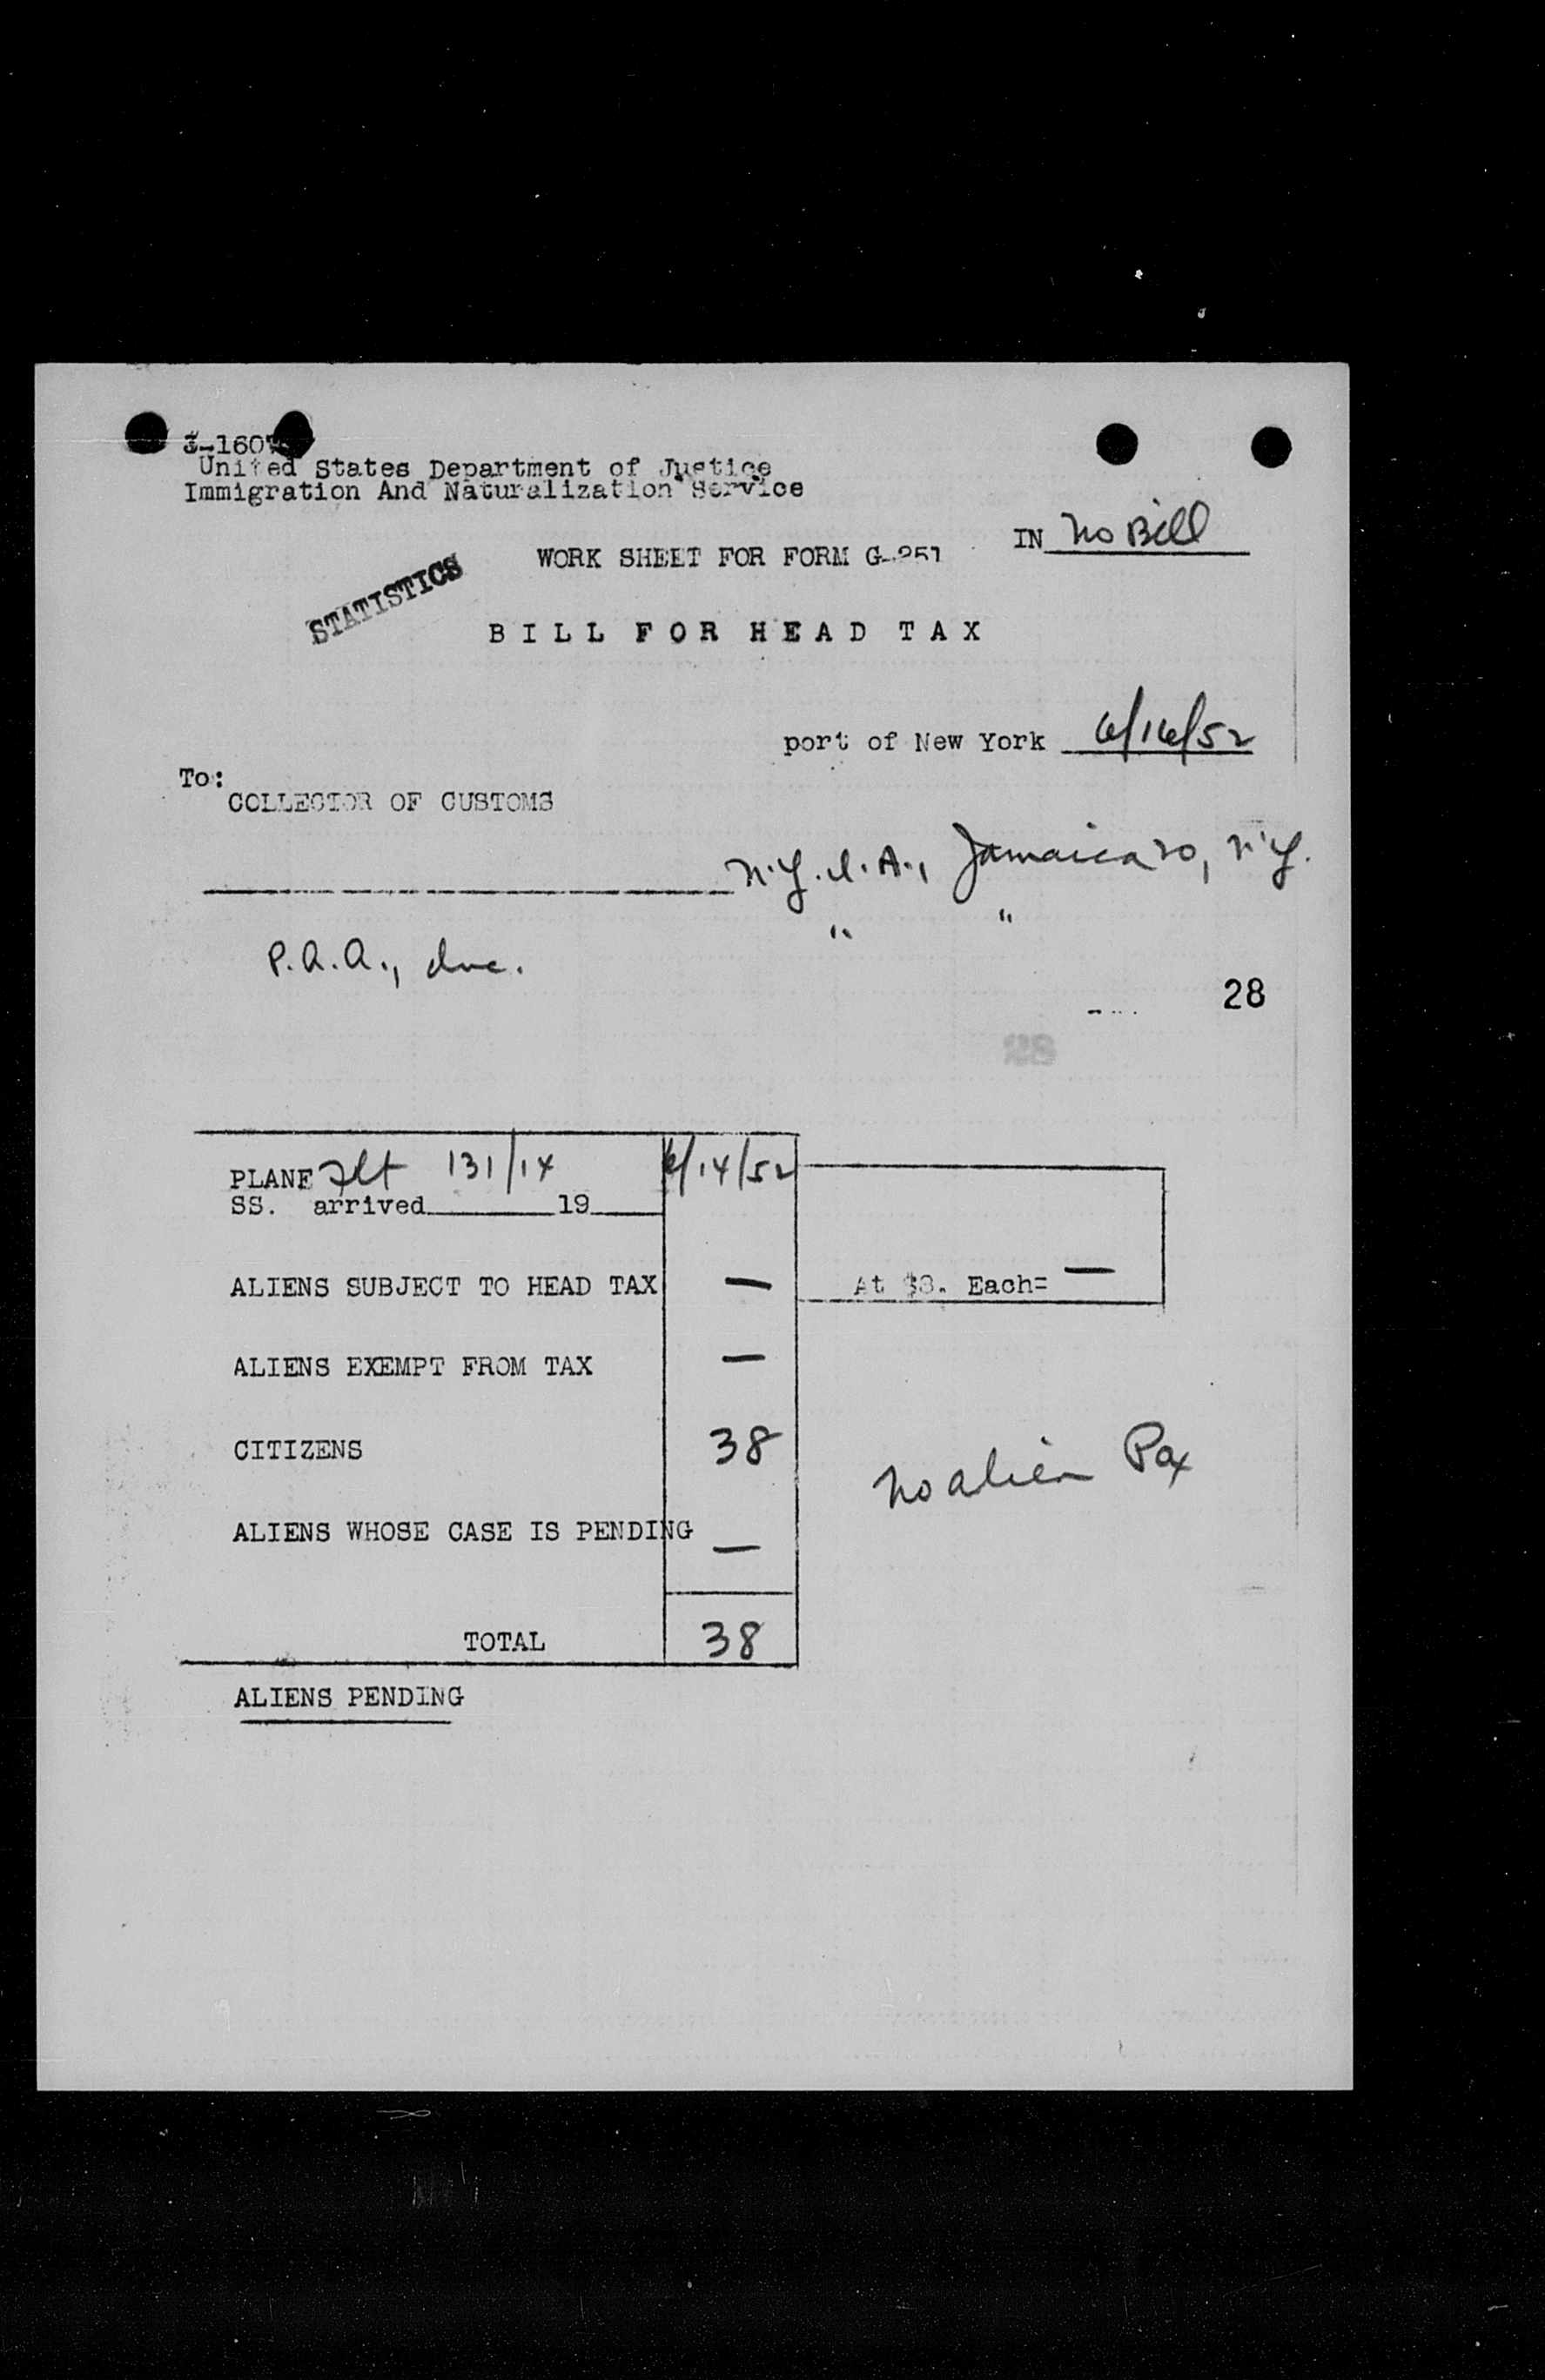 3-1607
United States Department of Justice
Immigration And Naturalization Service
IN No Bill
WORK SHEET FOR FORM G-251
STATISTICS
BILL FOR HEAD TAX
port of New York 6/16/52
To:
COLLECTOR OF CUSTOMS
N.Y.I.A., Jamaica 30, N.Y.
" "
P.A.A., Inc.
28
28
PLANE Flt 131/14 6/14/52
SS. arrived 19
ALIENS SUBJECT TO HEAD TAX — At $8. Each= —
ALIENS EXEMPT FROM TAX —
CITIZENS 38
No alien Pax
ALIENS WHOSE CASE IS PENDING —
TOTAL 38
ALIENS PENDING